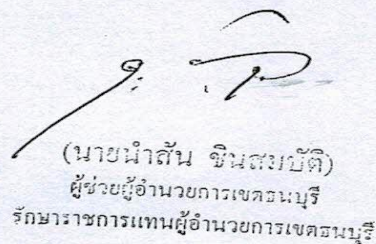 (นายนำสัน ชินสมบัติ)
ผู้ช่วยผู้อำนวยการเขตธนบุรี
รักษาราชการแทนผู้อำนวยการเขตธนบุรี